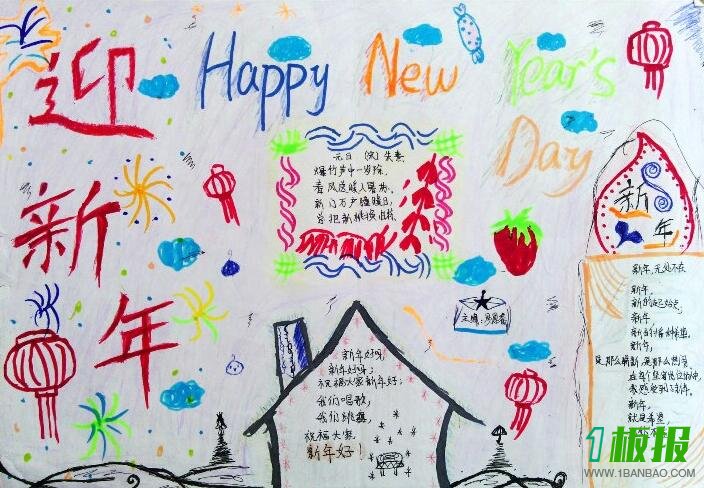 迎新年
Happy New Year's Day
元日 (宋)
爆竹声中一岁除,
春风送暖入屠苏.
门万户瞳瞳日,
总把新桃换旧符.
新年
新年,无处不在
新年,
新的起
新年
新年,
新年,
就是希望
主编:
新年好呀;
新年好呀;
祝福大家新年好;
我们唱歌,
我们跳舞,
祝福大家
新年好!
1板报
WWW.1BANBAO.COM